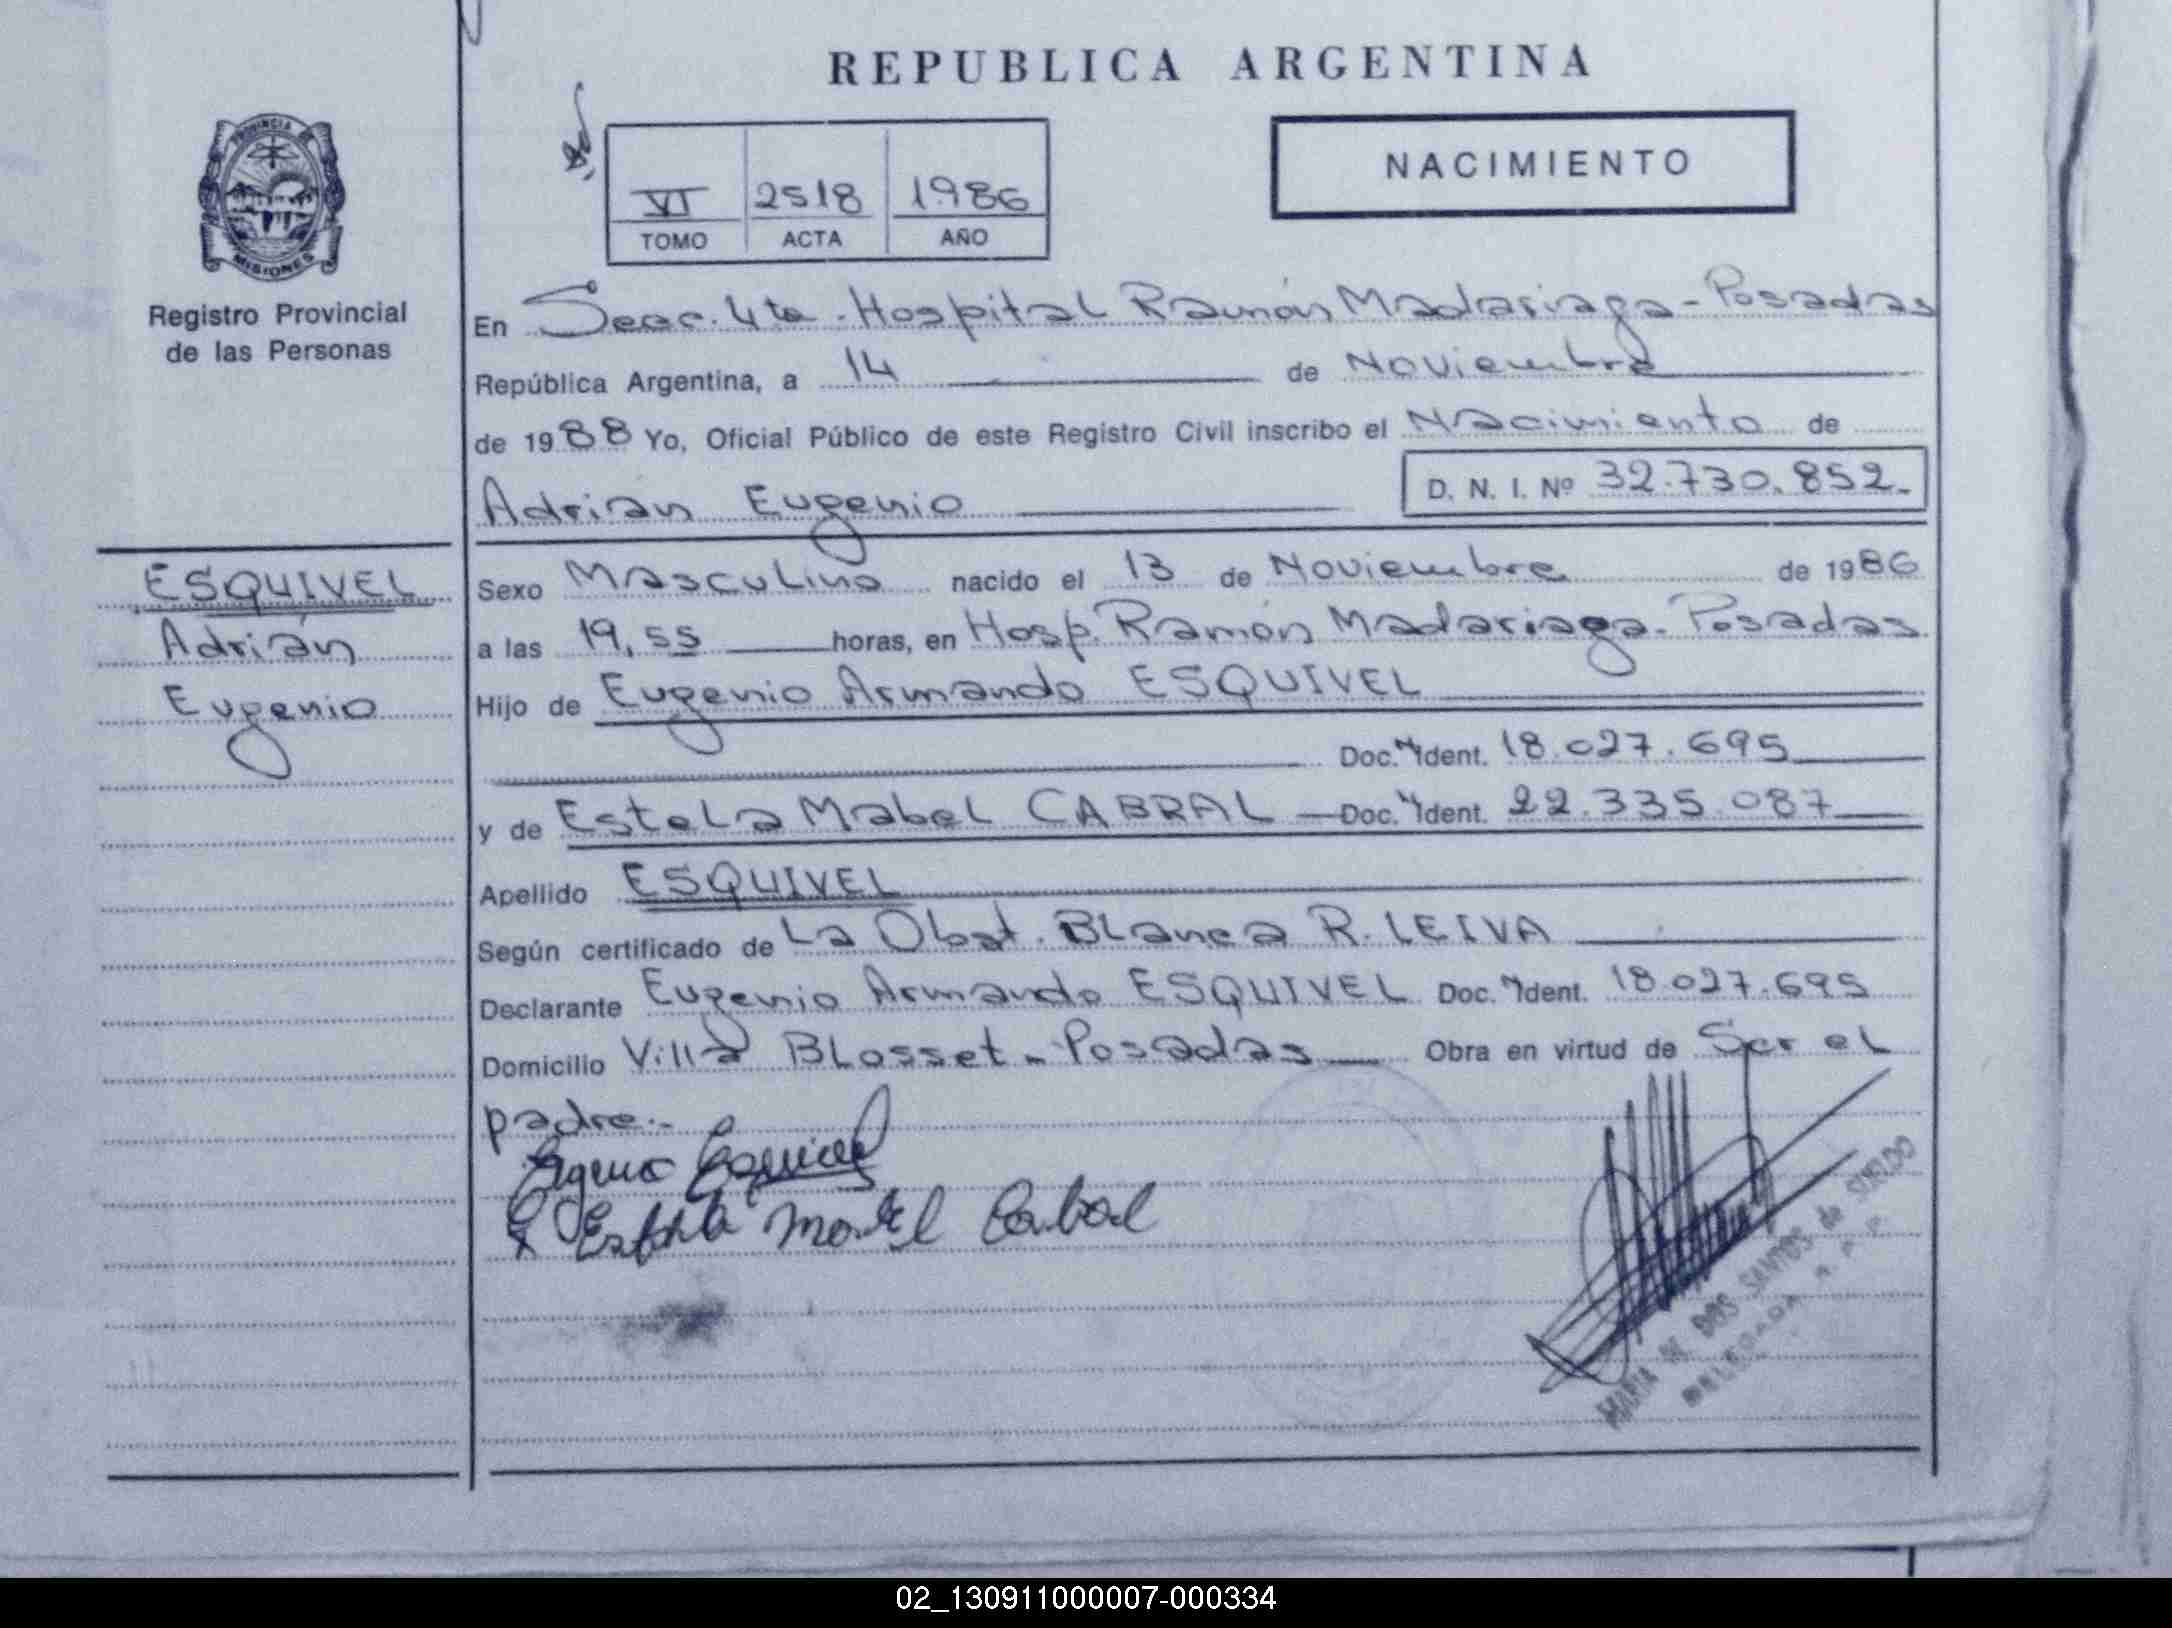 REPUBLICA ARGENTINA
PROVINCIA DE
MISIONES
Registro Provincial
de las Personas
VI 2518 1986
TOMO ACTA AÑO
NACIMIENTO
En Secc. 4ta - Hospital Ramón Madariaga - Posadas
República Argentina, a 14 de Noviembre
de 1988 Yo, Oficial Público de este Registro Civil inscribo el Nacimiento de
Adrián Eugenio D. N. I. Nº 32.730.852.-
ESQUIVEL
Adrián
Eugenio
Sexo Masculino nacido el 13 de Noviembre de 1986
a las 19,55 horas, en Hosp. Ramón Madariaga - Posadas
Hijo de Eugenio Armando ESQUIVEL
Doc. Ident. 18.027.695
y de Estela Mabel CABRAL — Doc. Ident. 22.335.087
Apellido ESQUIVEL
Según certificado de La Obst. Blanca R. LEIVA
Declarante Eugenio Armando ESQUIVEL Doc. Ident. 18.027.695
Domicilio Villa Blosset - Posadas Obra en virtud de Ser el
padre.-
Esquivel
Estela Mabel Cabral
MARIA DOS SANTOS de
DELEGADA
02_130911000007-000334